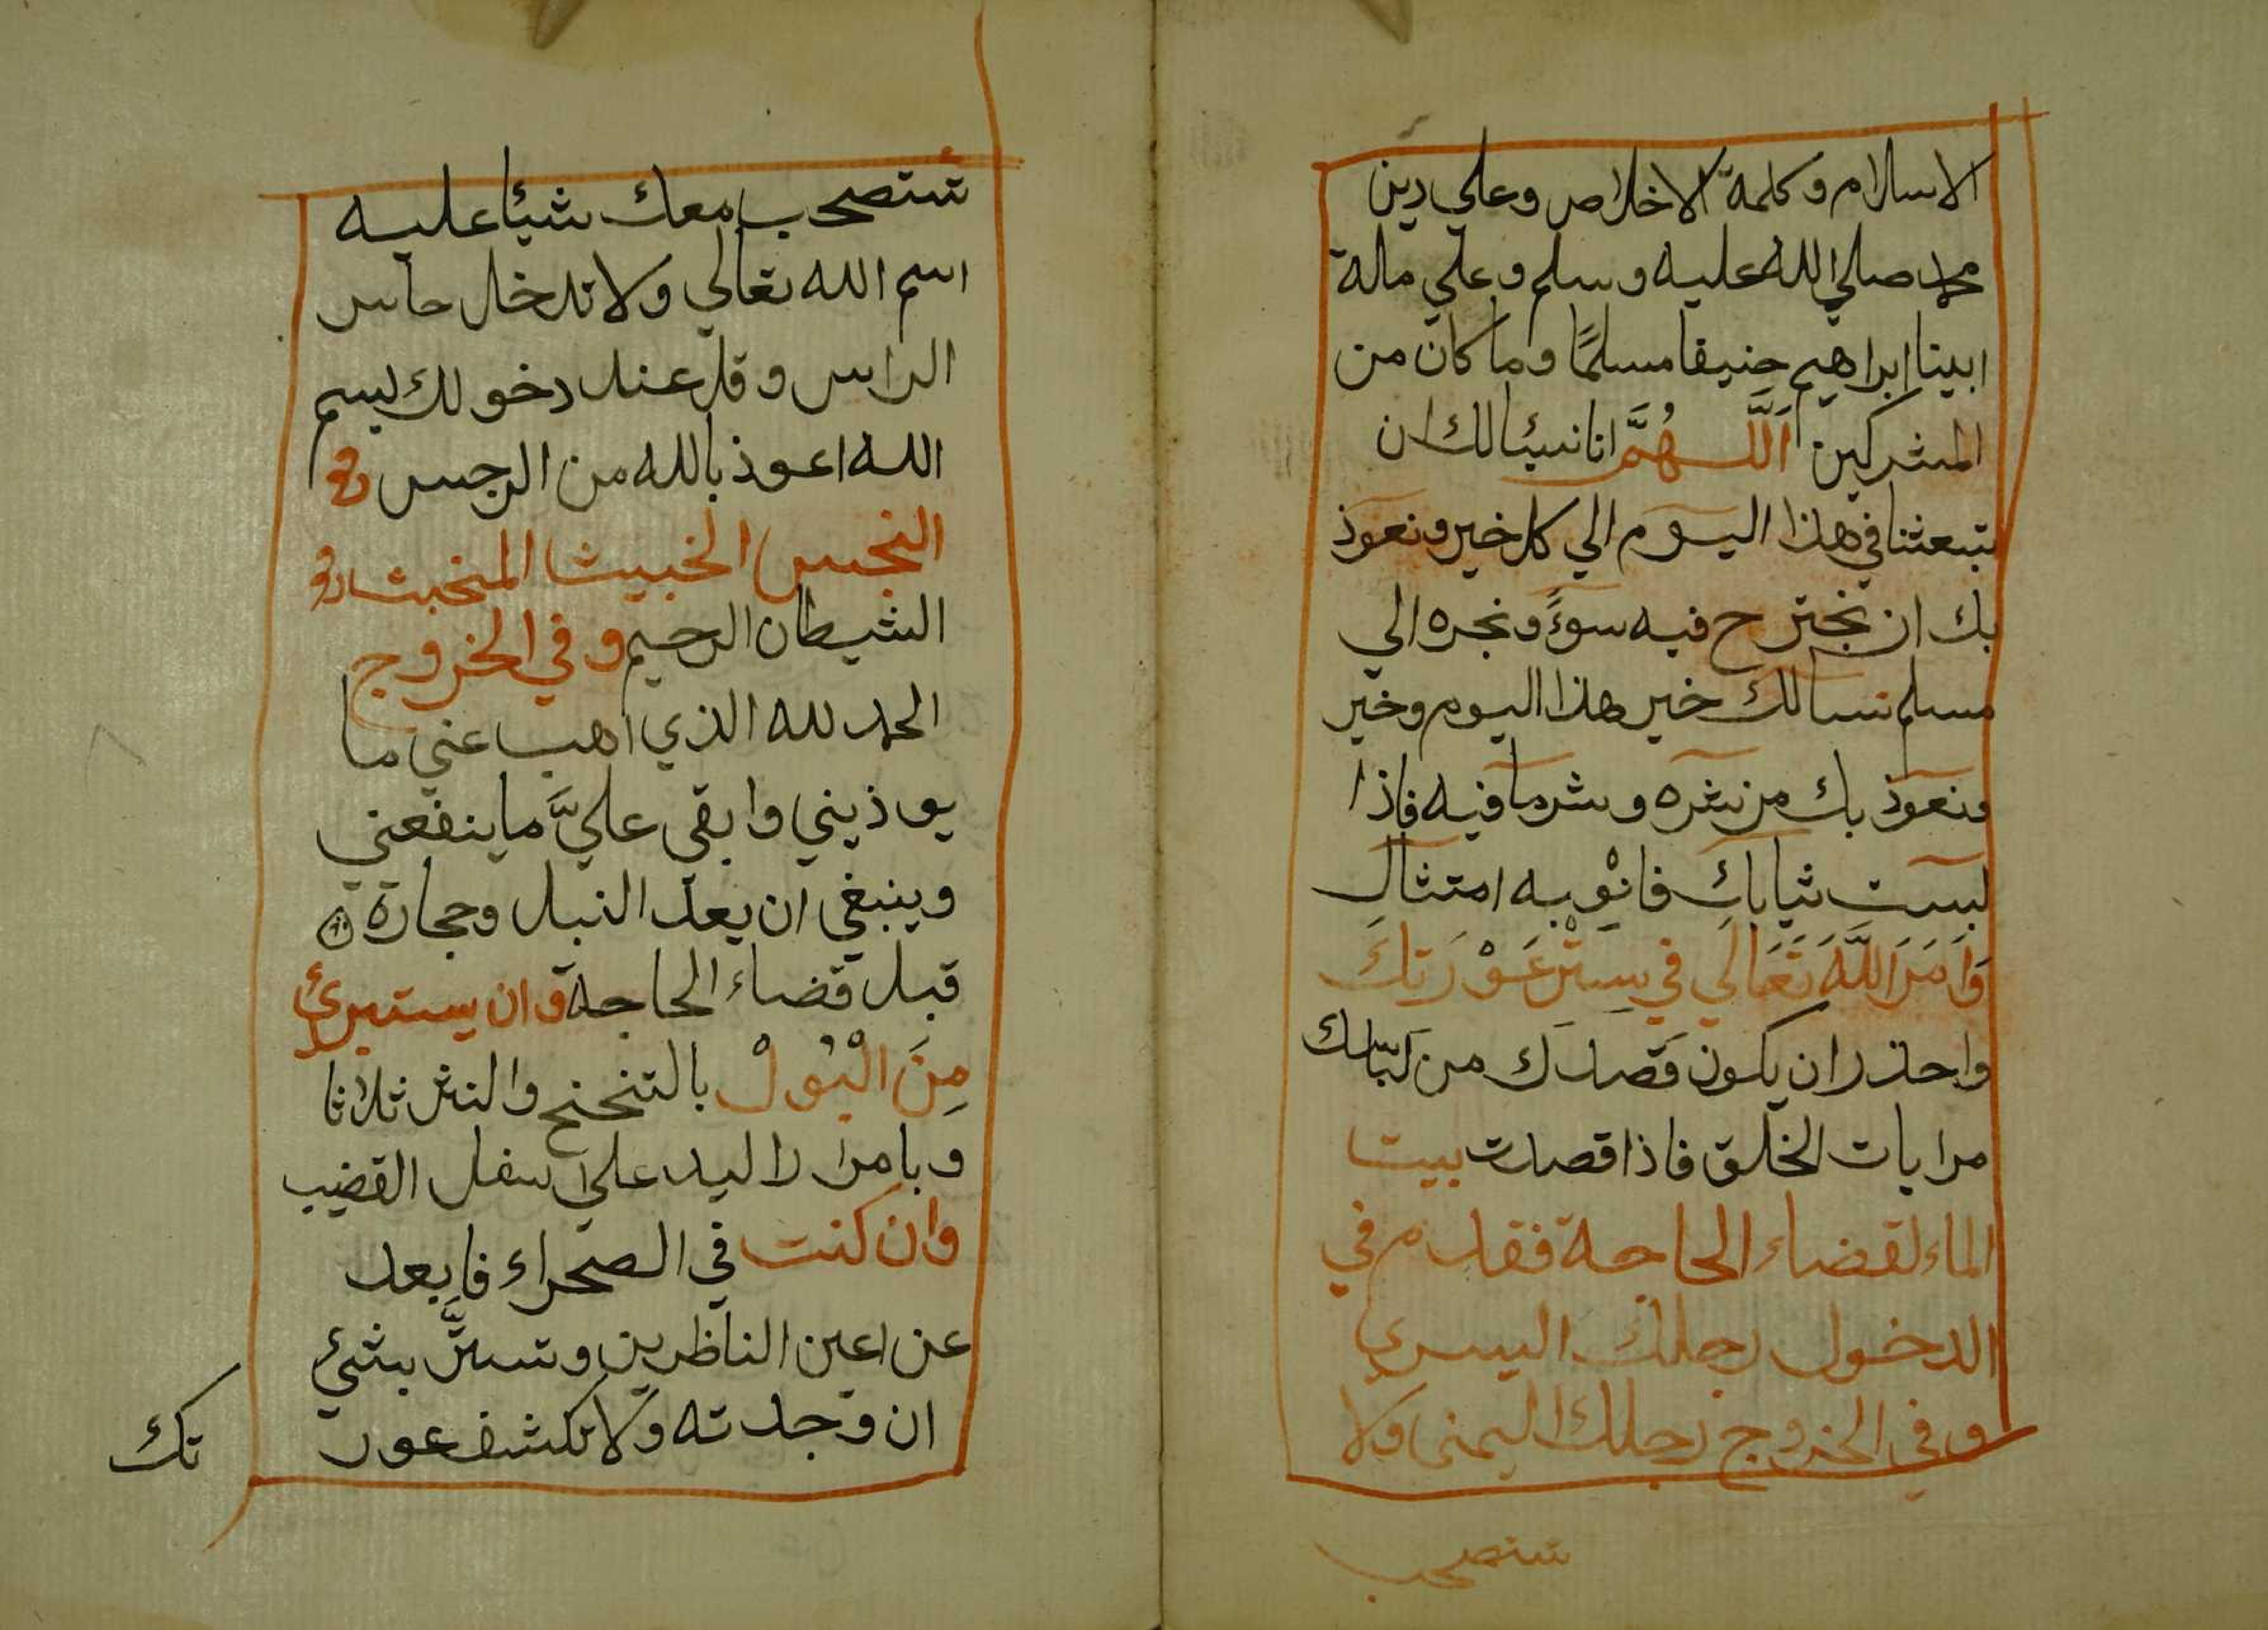 الاسلام وكلمة الاخلاص وعلي دين
محمد صلي الله عليه وسلم وعلي ملة
ابينا ابراهيم حنيفا مسلمًا وما كان من
المشركين اَللَّهُمَّ انا نسئالك ان
تبعثنا في هذا اليوم الي كل خير ونعوذ
بك ان نجترح فيه سوءً ونجره الي
مسلم نسالك خير هذا اليوم وخير
ونعوذ بك من شره وشر ما فيه فاذا
لبست ثيابك فانْوِ به امتثال
وَاَمَرَ اللَّهَ تَعَالَي في سِتْرِ عَوْرَتكَ
واحذر ان يكون قصدك من لباسك
مرايات الخلق فاذا قصدت بيت
الماء لقضاء الحاجة فقدم في
الدخول رجلك اليسري
وفي الخروج رجلك اليمنى ولا
تستصحب
تستصحب معك شيئا عليه
اسم الله تعالي ولا تدخل حاس
الراس وقل عند دخولك بسم
الله اعوذ بالله من الرجس و
النجس الخبيث المخبث و
الشيطان الرجيم وفي الخروج
الحمد لله الذي اهب عني ما
يوذيني وابقي عليَّ ما ينفعني
وينبغي ان يعد النبل وحجارة
قبل قضاء الحاجة وان يستبرئ
مِنَ الْبُولْ بالتنحنح والنثر ثلاثا
وبامرار اليد علي اسفل القضيب
وان كنت في الصحراء فابعد
عن اعين الناظرين وتستَّر بشيئ
ان وجدته ولا تكشف عور
تك